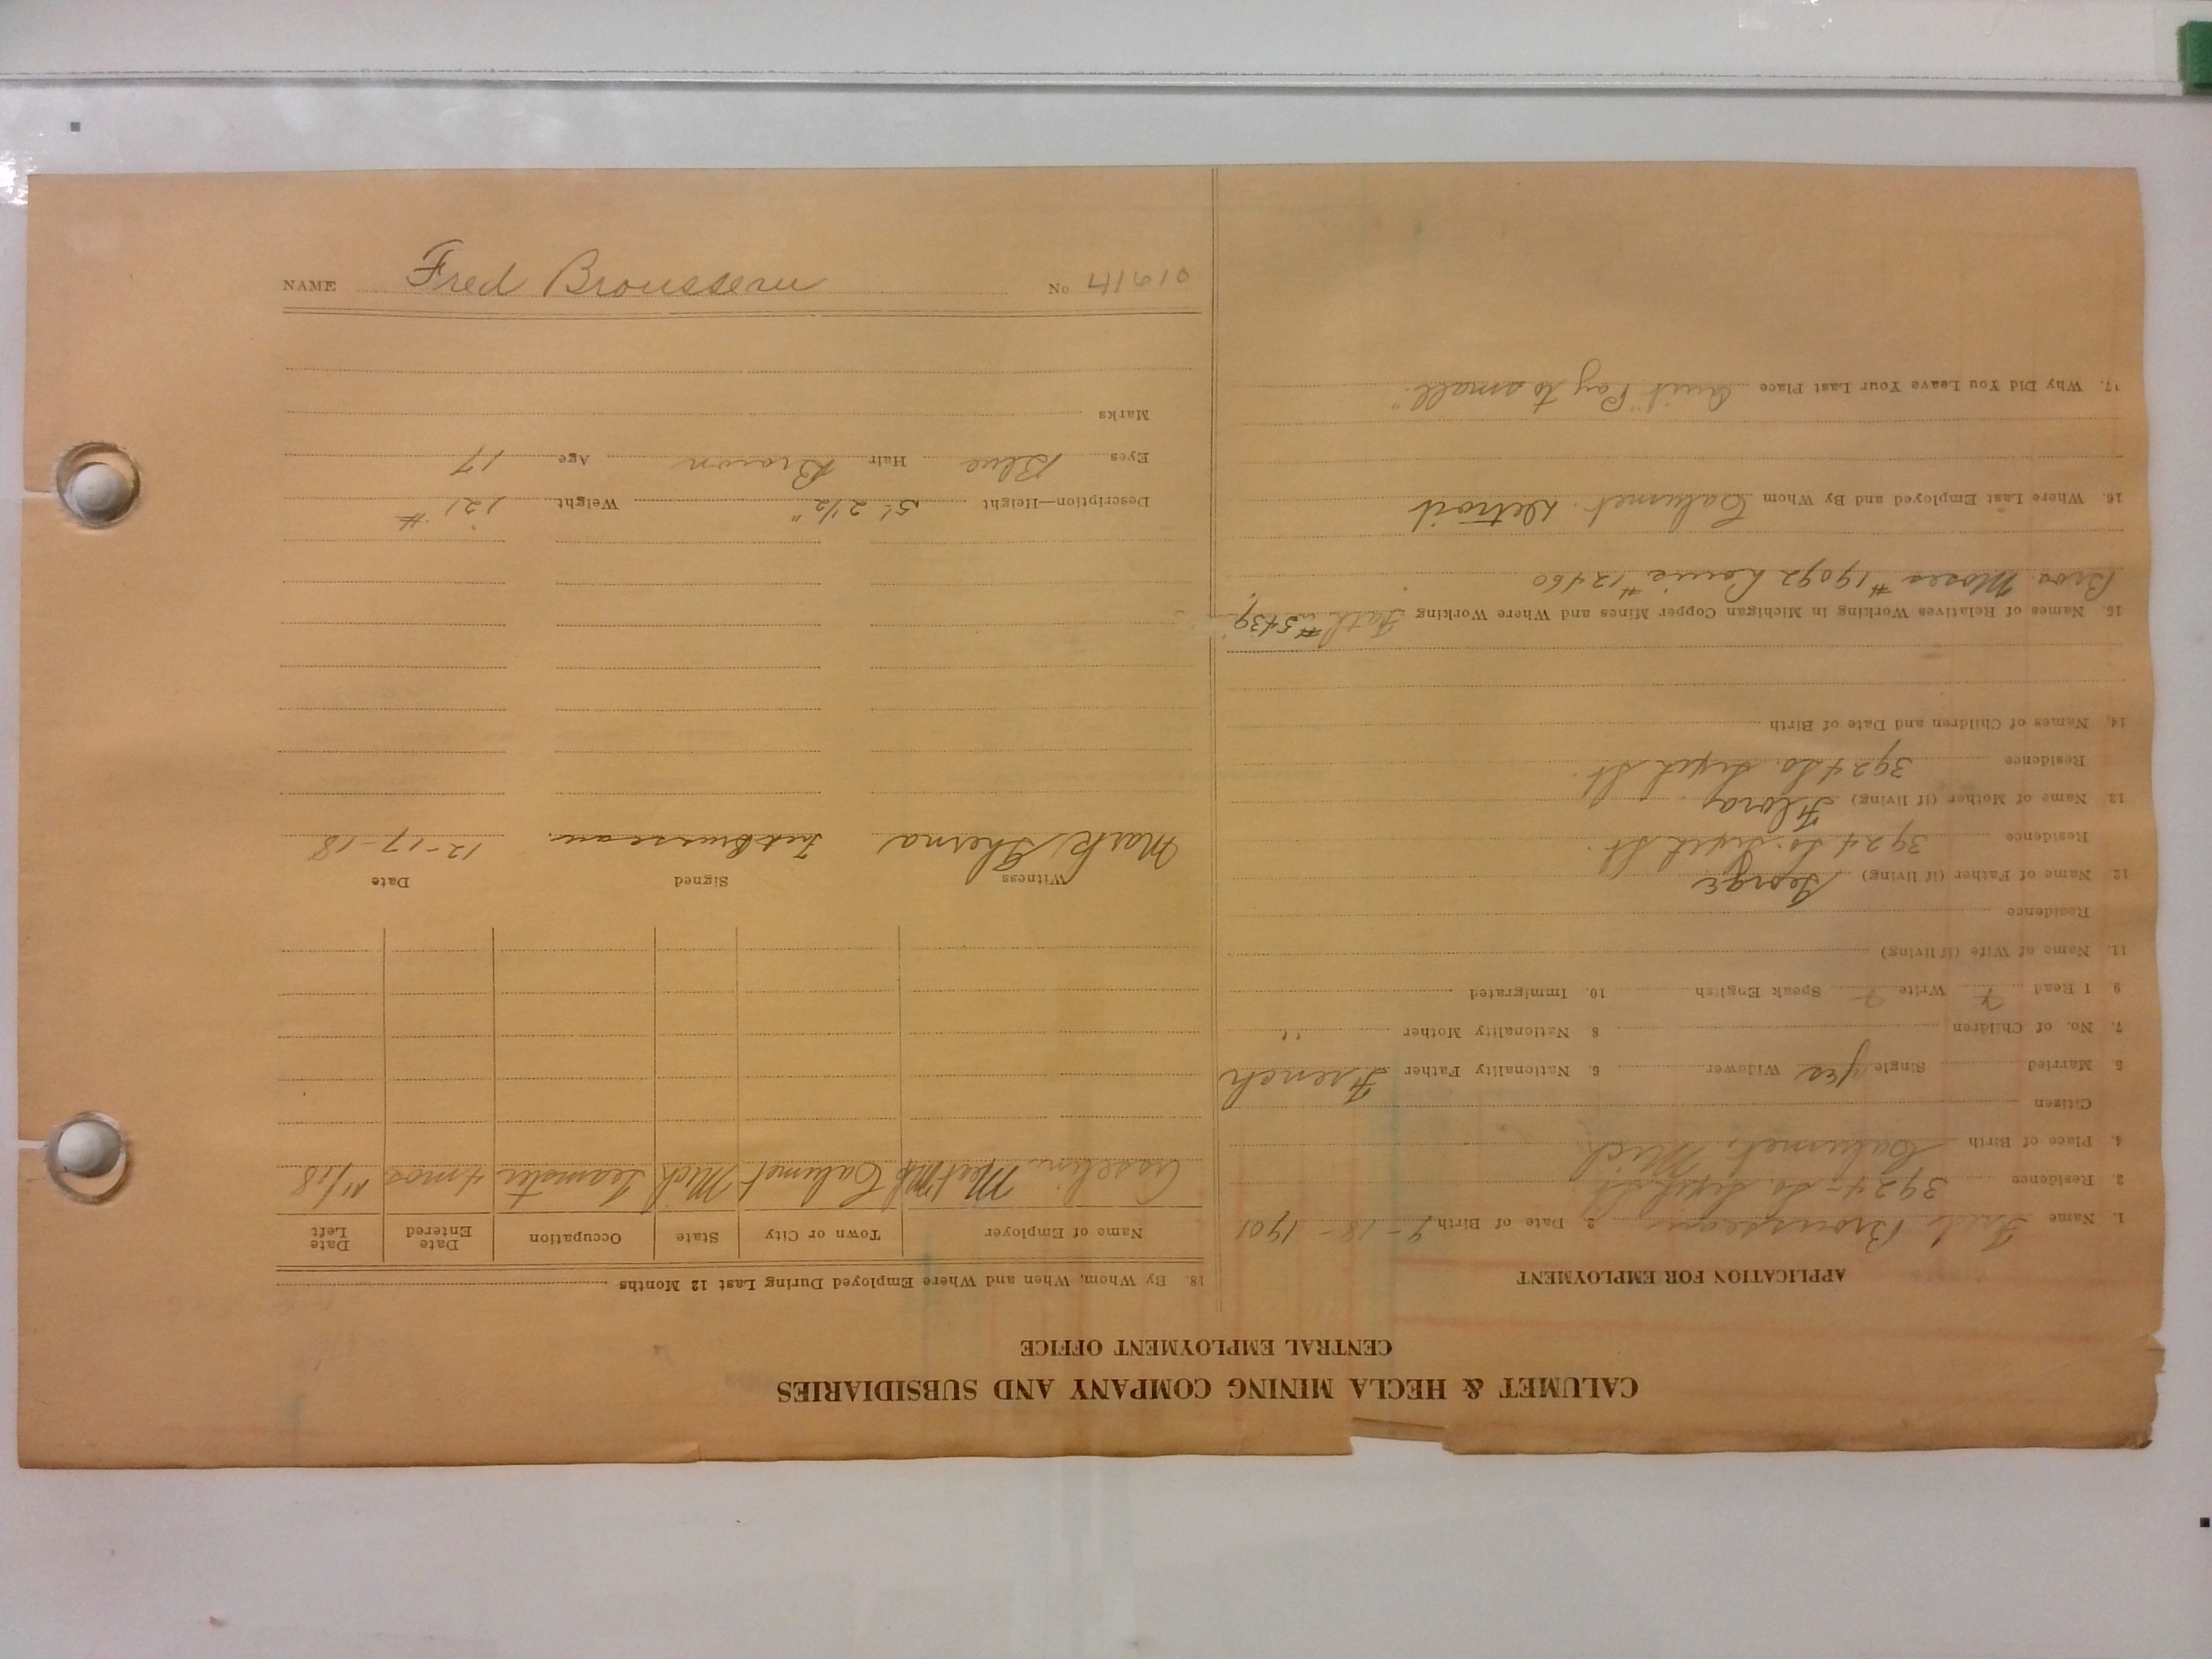 CALUMET & HECLA MINING COMPANY AND SUBSIDIARIES
CENTRAL EMPLOYMENT OFFICE
APPLICATION FOR EMPLOYMENT
1. Name Fred Brousseau 2. Date of Birth 9-18-1901
3. Residence 3924 So. St.
4. Place of Birth Calumet, Mich
Citizen
5. Married Single yes Widower 6. Nationality Father French
7. No. of Children 8 Nationality Mother "
9. I Read Write Speak English 10. Immigrated
11. Name of Wife (if living)
Residence
12. Name of Father (if living) George
Residence 3924 So. St.
13. Name of Mother (if living) Flora
Residence 3924 So. St.
14. Names of Children and Date of Birth
15. Names of Relatives Working in Michigan Copper Mines and Where Working Fath #5439
Bros. Moses #19092 Louie #12460
16. Where Last Employed and By Whom Calumet. Detroit
17. Why Did You Leave Your Last Place Quit "Pay to small."
18. By Whom, When and Where Employed During Last 12 Months
Name of Employer Town or City State Occupation Date Entered Date Left
Asselin Calumet Mich Teamster 4 mos 11/18
Witness Signed Date
Mark Fred Brousseau 12-17-18
Description—Height 5' 2 1/2" Weight 121 #
Eyes Blue Hair Brown Age 17
Marks
NAME Fred Brousseau No 41610